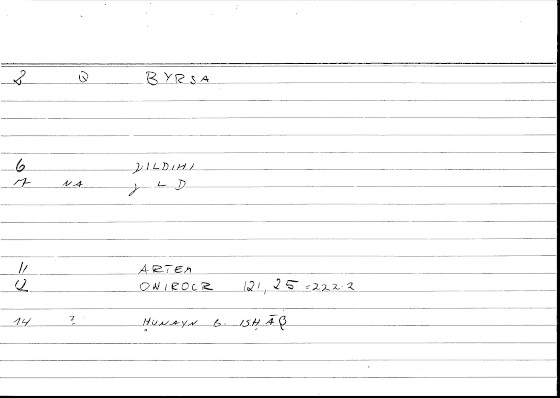 2 Q BYRSA
6 ɣILDIHI
7 NA ɣLD
11 ARTEM
12 ONIROCR 121,25 = 222.2
14 ? ḤUNAYN B. ISḤĀQ